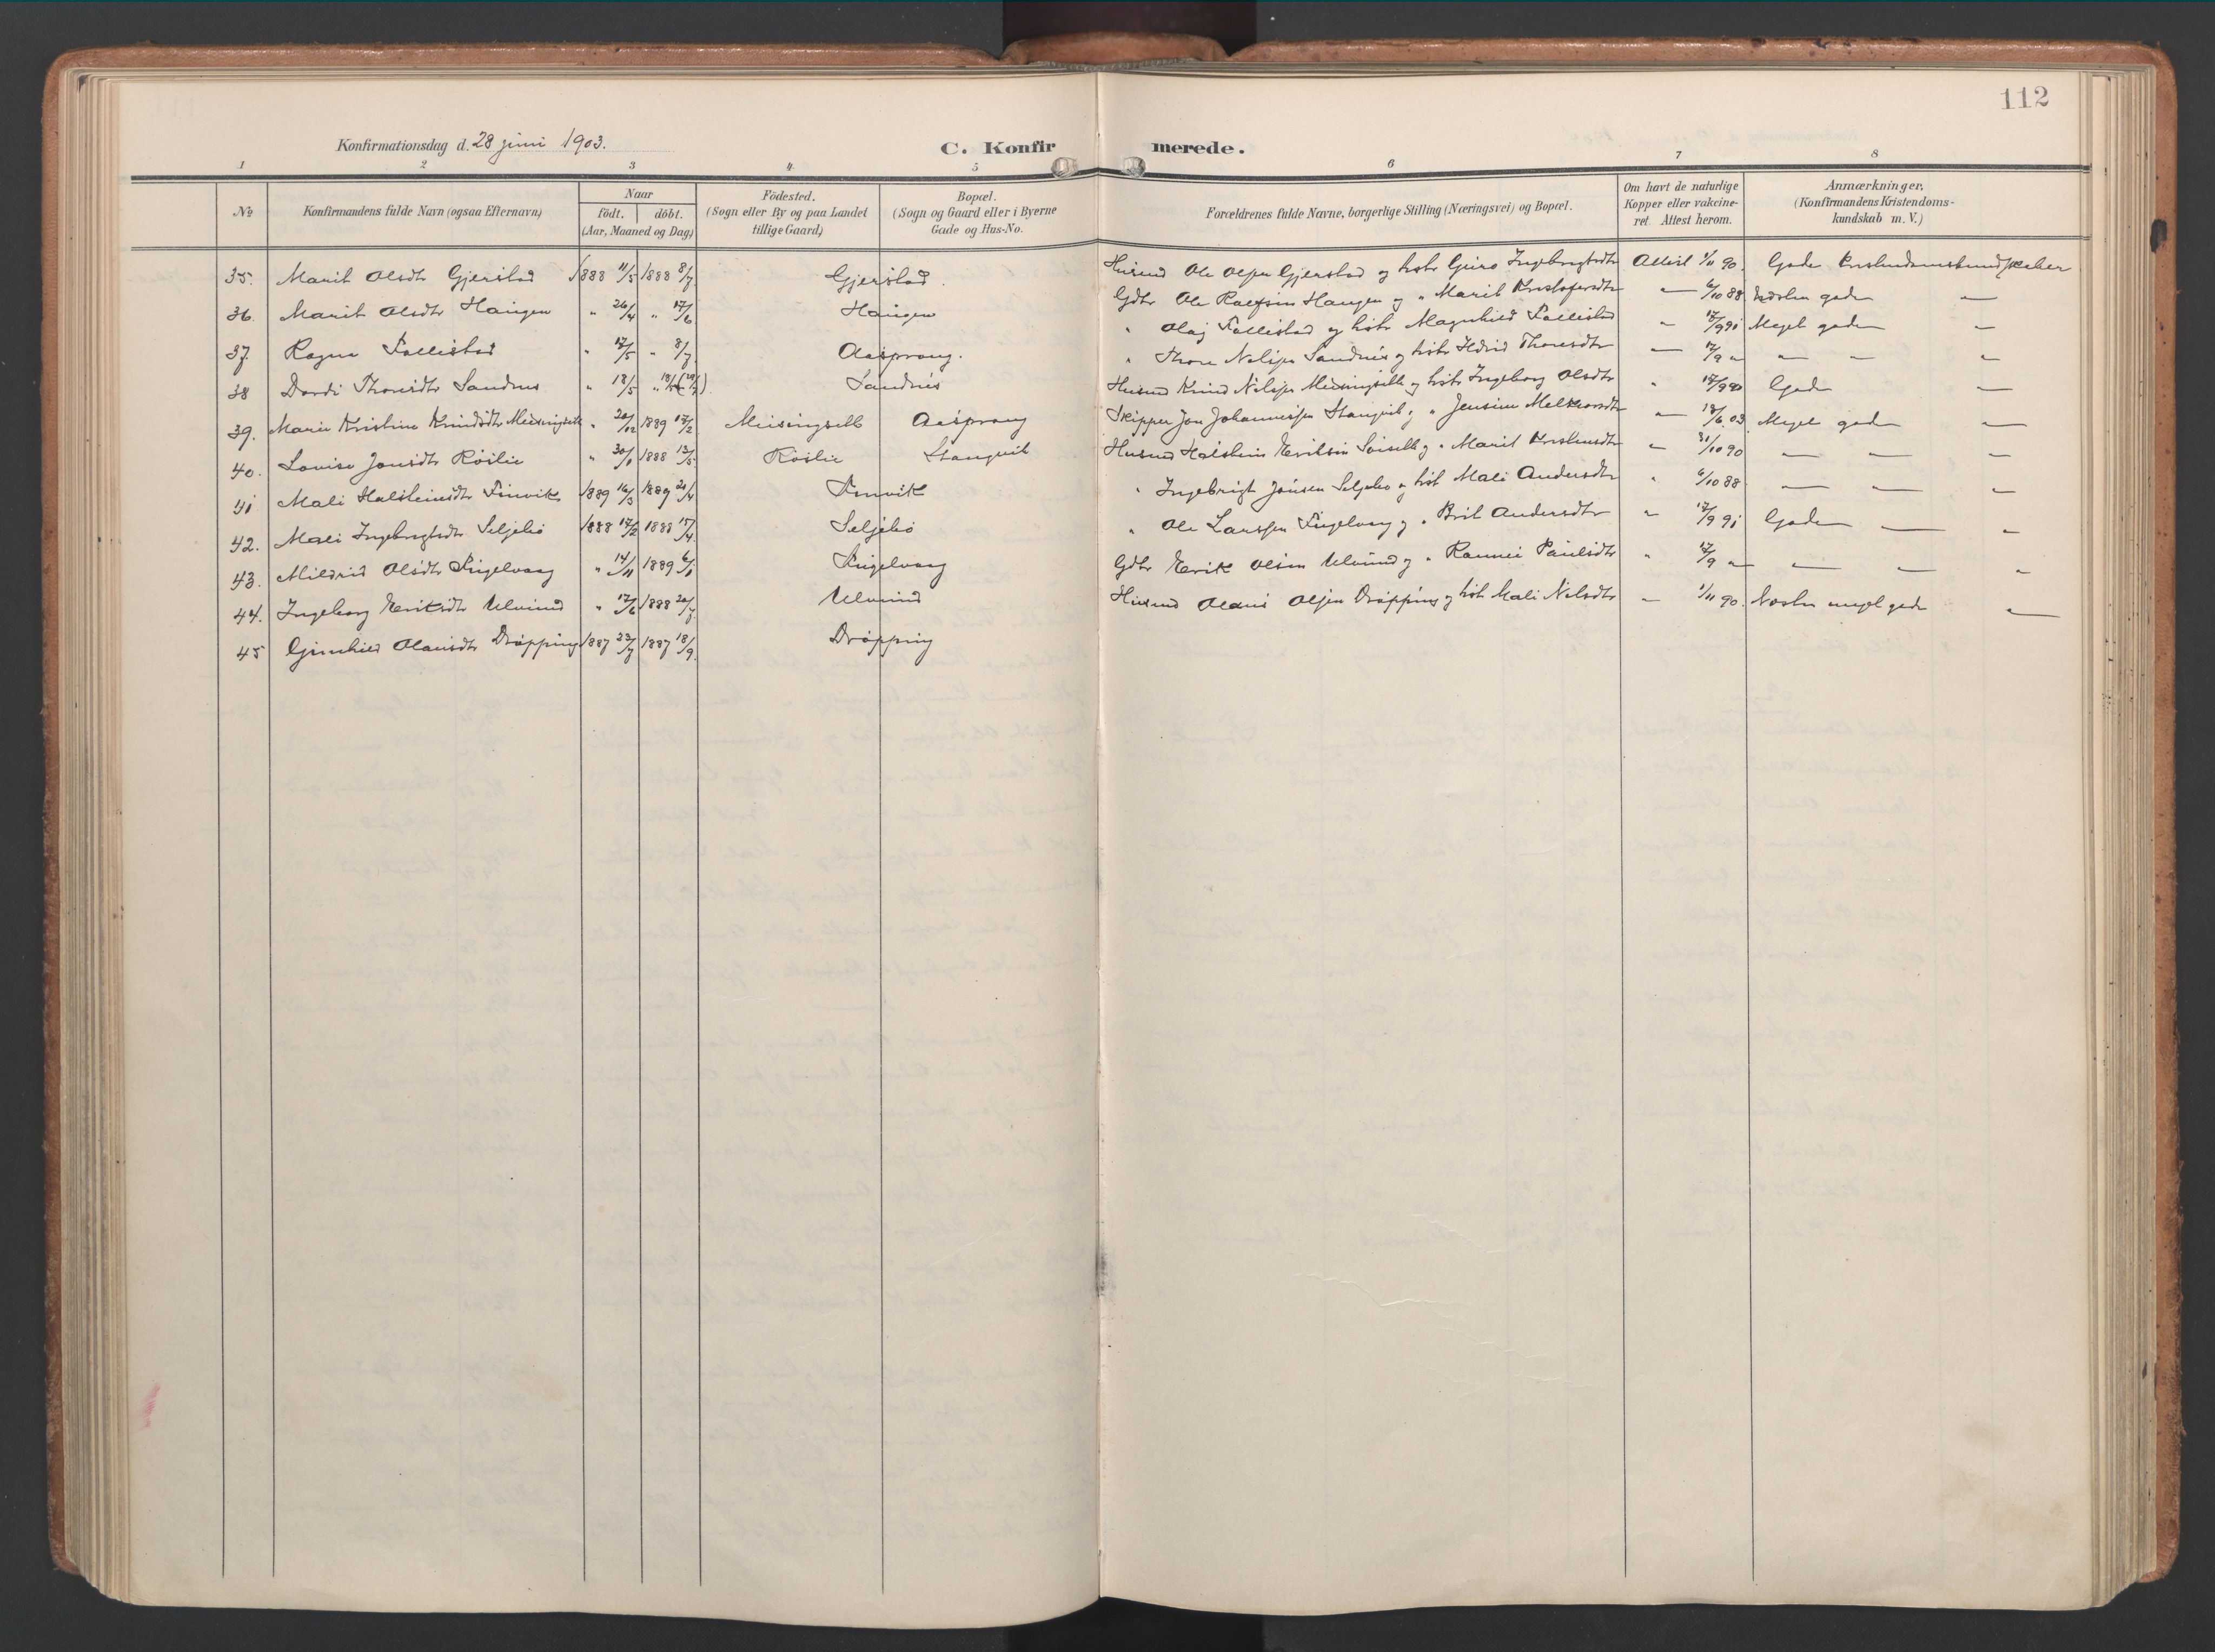 112
Konfirmationsdag d. 28 juni 1903.
C. Konfirmerede.
1 2 3 4 5 6 7 8
No
Konfirmandens fulde Navn (ogsaa Efternavn)
Naar
födt. döbt.
(Aar, Maaned og Dag)
Födested.
(Sogn eller By og paa Landet
tillige Gaard)
Bopæl.
(Sogn og Gaard eller i Byerne
Gade og Hus-No.
Forældrenes fulde Navne, borgerlige Stilling (Næringsvei) og Bopæl.
Om havt de naturlige
Kopper eller vakcine-
ret. Attest herom.
Anmærkninger.
(Konfirmandens Kristendoms-
kundskab m. V.)
35. Marit Olsdtr Gjerstad 1888 11/5 1888 8/7 Gjerstad. Husmd Ole Olsen Gjerstad og hstr Guro Ingebrigtsdtr Attest 1/11 90. Gode Kristendomskundskaber
36. Marit Olsdtr Haugen " 26/4 " 17/6 Haugen Gdbr Ole Haugen og " Marit Kristofersdtr — 6/10 88 gode —
37. Ragna Follestad " 17/5 " 8/7 Aasprong. " Olaf Follestad og hstr Magnhild Follestad " 17/9 91 Meget gode —
38 Dordi Thoresdtr Sandnes " 18/5 " Sandnes " Thore Nilsen Sandnes og hstr Thoresdtr — 17/9 " — — —
39. Marie Kristine Knudsdtr Meisingsett " 20/12 1889 17/2 Meisingsett Aasprong Husmd Knud Nilsen Meisingsett og hstr Ingeborg Olsdtr " 17/9 90 Gode —
40. Lovise Jonsdtr Röslie " 30/1 1888 13/5 Röslie Stangvik Skipper Jon Johannessen Stangvik og " Jensine Melkiorsdtr — 18/6 03 Meget gode —
41 Mali Halsteinsdtr Finvik 1889 16/3 1889 21/4 Finvik Husmd Halstein Eriksen og " Marit — 31/10 90 — — —
42. Mali Ingebrigtsdtr Seljebö 1888 17/2 1888 15/4 Seljebö " Ingebrigt Jonsen Seljebö og hstr Mali Andersdtr " 6/10 88 — — —
43. Mildrid Olsdtr Fugelvaag " 14/11 1889 6/1 Fugelvaag " Ole Larssen Fugelvaag og " Brit Andersdtr " 17/9 91 Gode — "
44. Ingeborg Eriksdtr Ulvund " 17/6 1888 20/7 Ulvund Gdbr Erik Olsen Ulvund og " Rannei Paulsdtr " 17/9 " — — "
45 Gunhild Olausdtr Dröpping 1887 23/7 1887 18/9 Dröpping Husmd Olaus Olsen Dröpping og hstr Mali Nilsdtr — 1/11 90. Næsten meget gode —